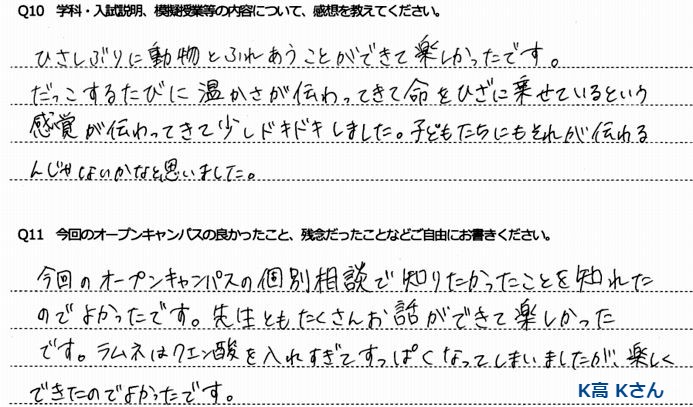 Q10 学科・入試説明、模擬授業等の内容について、感想を教えてください。
ひさしぶりに動物とふれあうことができて楽しかったです。
だっこするたびに温かさが伝わってきて命をひざに乗せているという
感覚が伝わってきて少しドキドキしました。子どもたちにもそれが伝わる
んじゃないかなと思いました。
Q11 今回のオープンキャンパスの良かったこと、残念だったことなどご自由にお書きください。
今回のオープンキャンパスの個別相談で知りたかったことを知れた
のでよかったです。先生ともたくさんお話ができて楽しかった
です。ラムネはクエン酸を入れすぎてすっぱくなってしまいましたが、楽しく
できたのでよかったです。
K高 Kさん